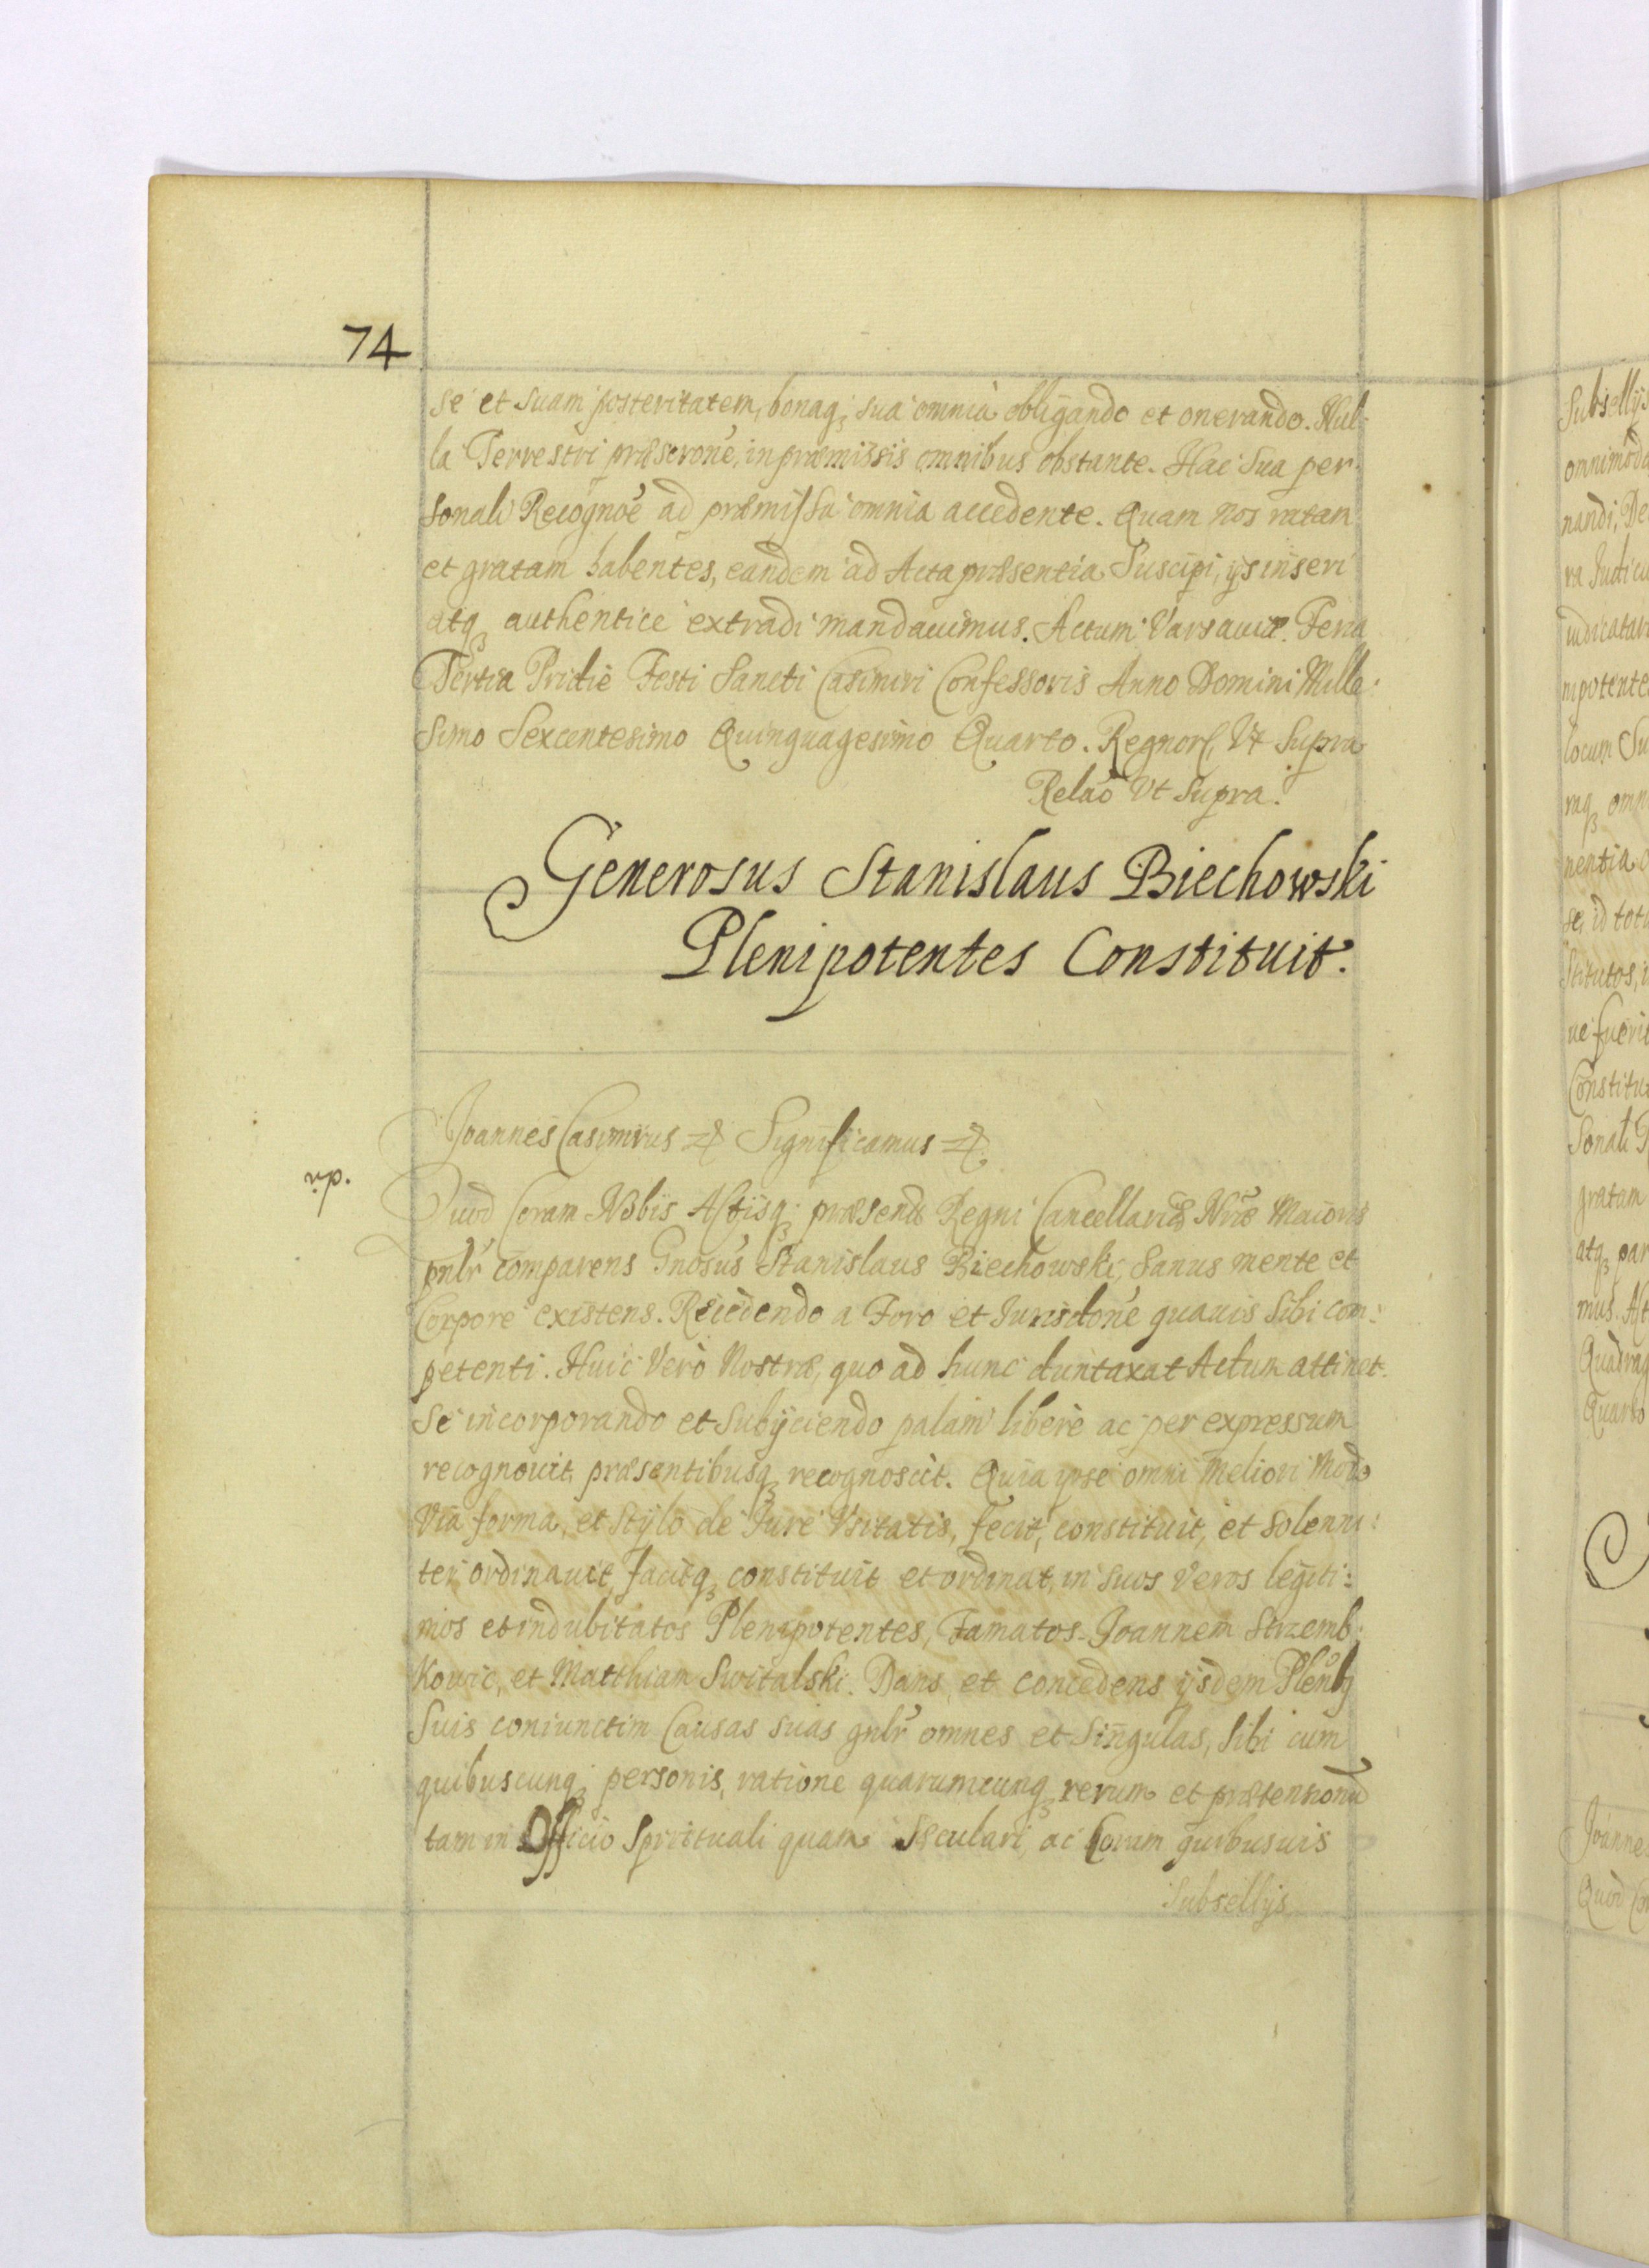 74
se et suam posteritatem, bonaq; sua omnia obligando et onerando. Nul:
la Terrestri præscrōne, in præmissis omnibus obstante. Hac sua per:
sonali Recognōe ad præmissa omnia accedente. Quam nos ratam
et gratam habentes, eandem ad Acta præsentia Suscipi, ijs inseri
atq; authentice extradi mandauimus. Actum Varsauiæ. Feria
Tertia Pridie Festi Sancti Casimiri Confessoris Anno Domini Mille:
simo Sexcentesimo Quinquagesimo Quarto. Regnor, Vt Supra
Relāo Vt Supra.
Generosus Stanislaus Biechowski
Plenipotentes Constituit.
Joannes Casimirus Significamus
Quod Coram Nobis Actisq; præsentib Regni Cancellariæ Nræ Maioris
pnlr comparens Gnosus Stanislaus Biechowski, Sanus mente et
Corpore existens. Recedendo a Foro et Jurisdone quauis Sibi com:
petenti. Huic Vero Nostræ, quo ad hunc duntaxat Actum attinet.
Se incorporando et Subijciendo palam libere ac per expressum
recognouit, præsentibusq; recognoscit. Quia ipse omni Meliori Modo
Via forma, et Stylo de Jure Vsitatis, fecit, constituit, et Solenni:
ter ordinauit, Facitq; constituit et ordinat, in suos Veros legiti:
mos et indubitatos Plenipotentes, Famatos Joannem Strzemb:
kowic, et Matthiam Switalski. Dans, et concedens ijsdem Plenbq
Suis coniunctim Causas suas gnlr omnes et Singulas, Sibi cum
quibuscunq; personis, ratione quarumcunq; rerum et prætensionū
tam in Officio Spirituali quam Sæculari, ac Coram quibusuis
Subsellijs